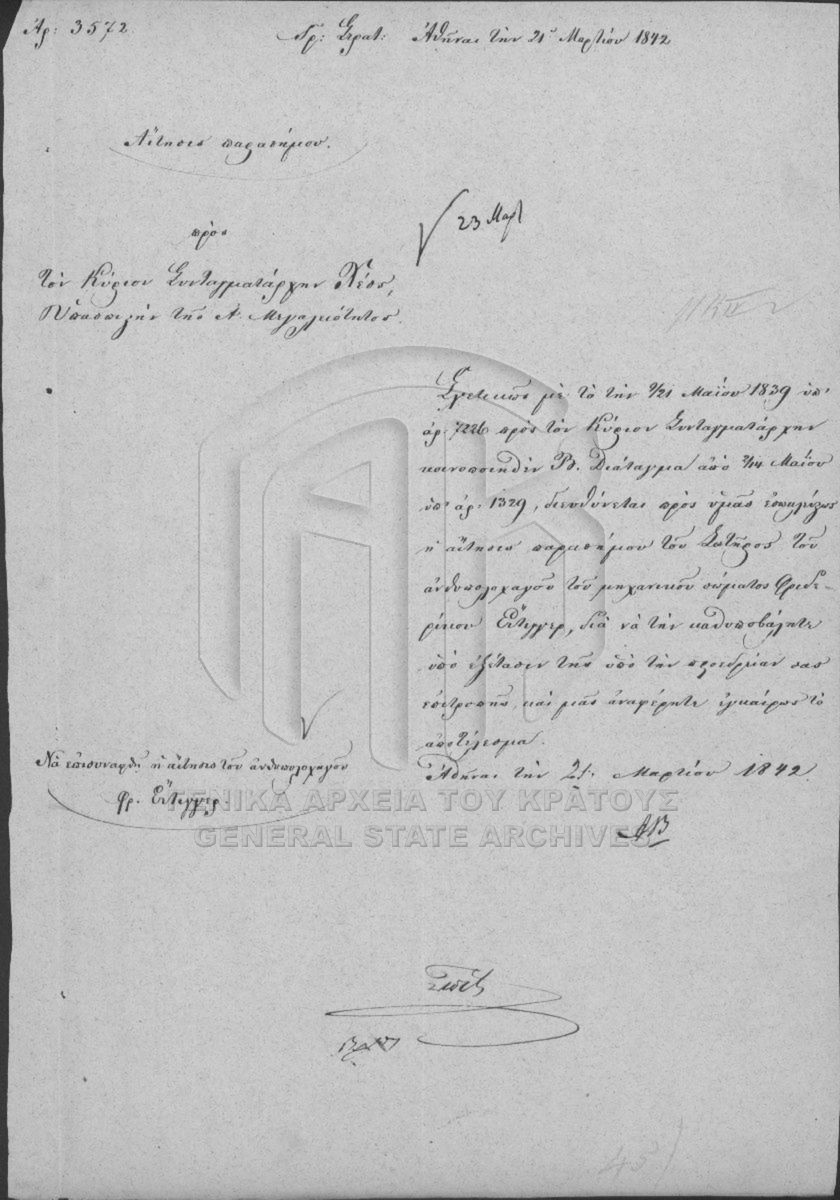 Ἀρ: 3572
Γρ: Στρατ: Ἀθῆναι τὴν 21 Μαρτίου 1842
Αἴτησις παρασήμου.
23 Μαρτ
πρὸς
τὸν Κύριον Συνταγματάρχην Ἔσς,
Ὑπασπιστὴν τῆς Α. Μεγαλειότητος.
Σχετικῶς μὲ τὸ τὴν 9/21 Μαΐου 1839 ὑπ'
ἀρ. 7226 πρὸς τὸν Κύριον Συνταγματάρχην
κοινοποιηθὲν Β. Διάταγμα ἀπὸ 2/14 Μαΐου
ὑπ' ἀρ. 1329, διευθύνεται πρὸς ὑμᾶς ἐσωκλείστως
ἡ αἴτησις παρασήμου τοῦ Σωτῆρος τοῦ
ἀνθυπολοχαγοῦ τοῦ μηχανικοῦ σώματος Φριδε-
ρίκου Εὔτιγγερ, διὰ νὰ τὴν καθυποβάλητε
ὑπὸ ἐξέτασιν τῆς ὑπὸ τὴν προεδρίαν σας
ἐπιτροπῆς, καὶ μᾶς ἀναφέρητε ἐγκαίρως τὸ
ἀποτέλεσμα.
Ἀθῆναι τὴν 21 Μαρτίου 1842
Νὰ ἐπισυναφθῇ ἡ αἴτησις τοῦ ἀνθυπολοχαγοῦ
Φρ. Εὔτιγγερ
ΓΕΝΙΚΑ ΑΡΧΕΙΑ ΤΟΥ ΚΡΑΤΟΥΣ
GENERAL STATE ARCHIVES
ΑΒ
45